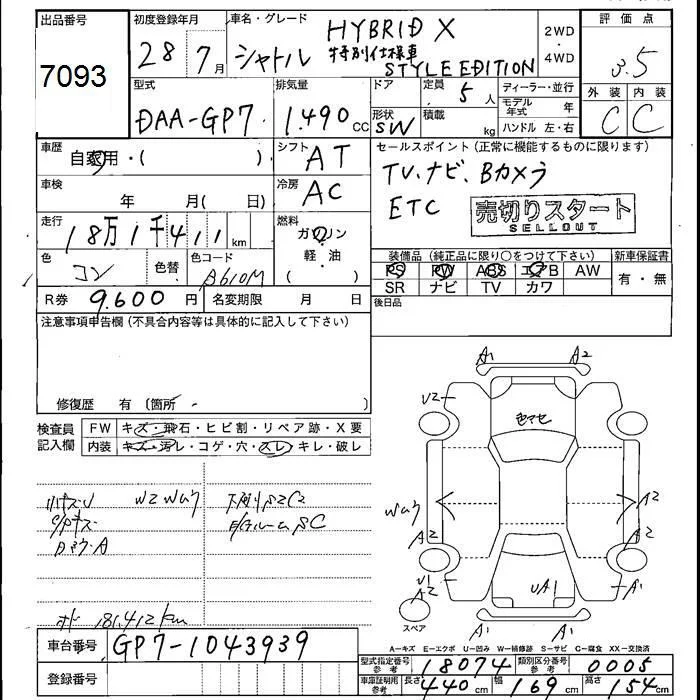 出品番号
7093
初度登録年月
28年7月
車名・グレード
シャトル
HYBRID X
特別仕様車
STYLE EDITION
2WD
・
4WD
評価点
3.5
外装 内装
C C
型式
DAA-GP7
排気量
1.490 CC
ドア
形状
SW
定員 5 人
積載 kg
ディーラー・並行
モデル年式 年
ハンドル 左・右
車歴
自家用・( )
シフト
AT
セールスポイント (正常に機能するものに限ります)
TV、ナビ、Bカメラ
ETC
売切りスタート
SELLOUT
車検
年 月( 日)
冷房
AC
走行
18万1千411 km
燃料
ガソリン
軽・油
( )
色
コン
色替
色コード
B610M
装備品 (純正品に限り○をつけて下さい)
PS PW ABS エアB AW
SR ナビ TV カワ
新車保証書
有・無
R券 9.600 円
名変期限 月 日
後日品
注意事項申告欄 (不具合内容等は具体的に記入して下さい)
修復歴 有 (箇所 )
検査員
記入欄
FW キズ・飛石・ヒビ割・リペア跡・X要
内装 キズ・汚レ・コゲ・穴・スレ・キレ・破レ
A1 A2
V2
A2
A2
A2
U1
A2
UA1
A1
A1 A1
スペア
181.412 km
A=キズ E=エクボ U=凹み W=補修跡 S=サビ C=腐食 XX=交換済
車台番号 GP7-1043939
登録番号
型式指定番号 参考 18074
類別区分番号 参考 0005
車庫証明用 参考 長さ 440 cm 幅 169 cm 高さ 154 cm